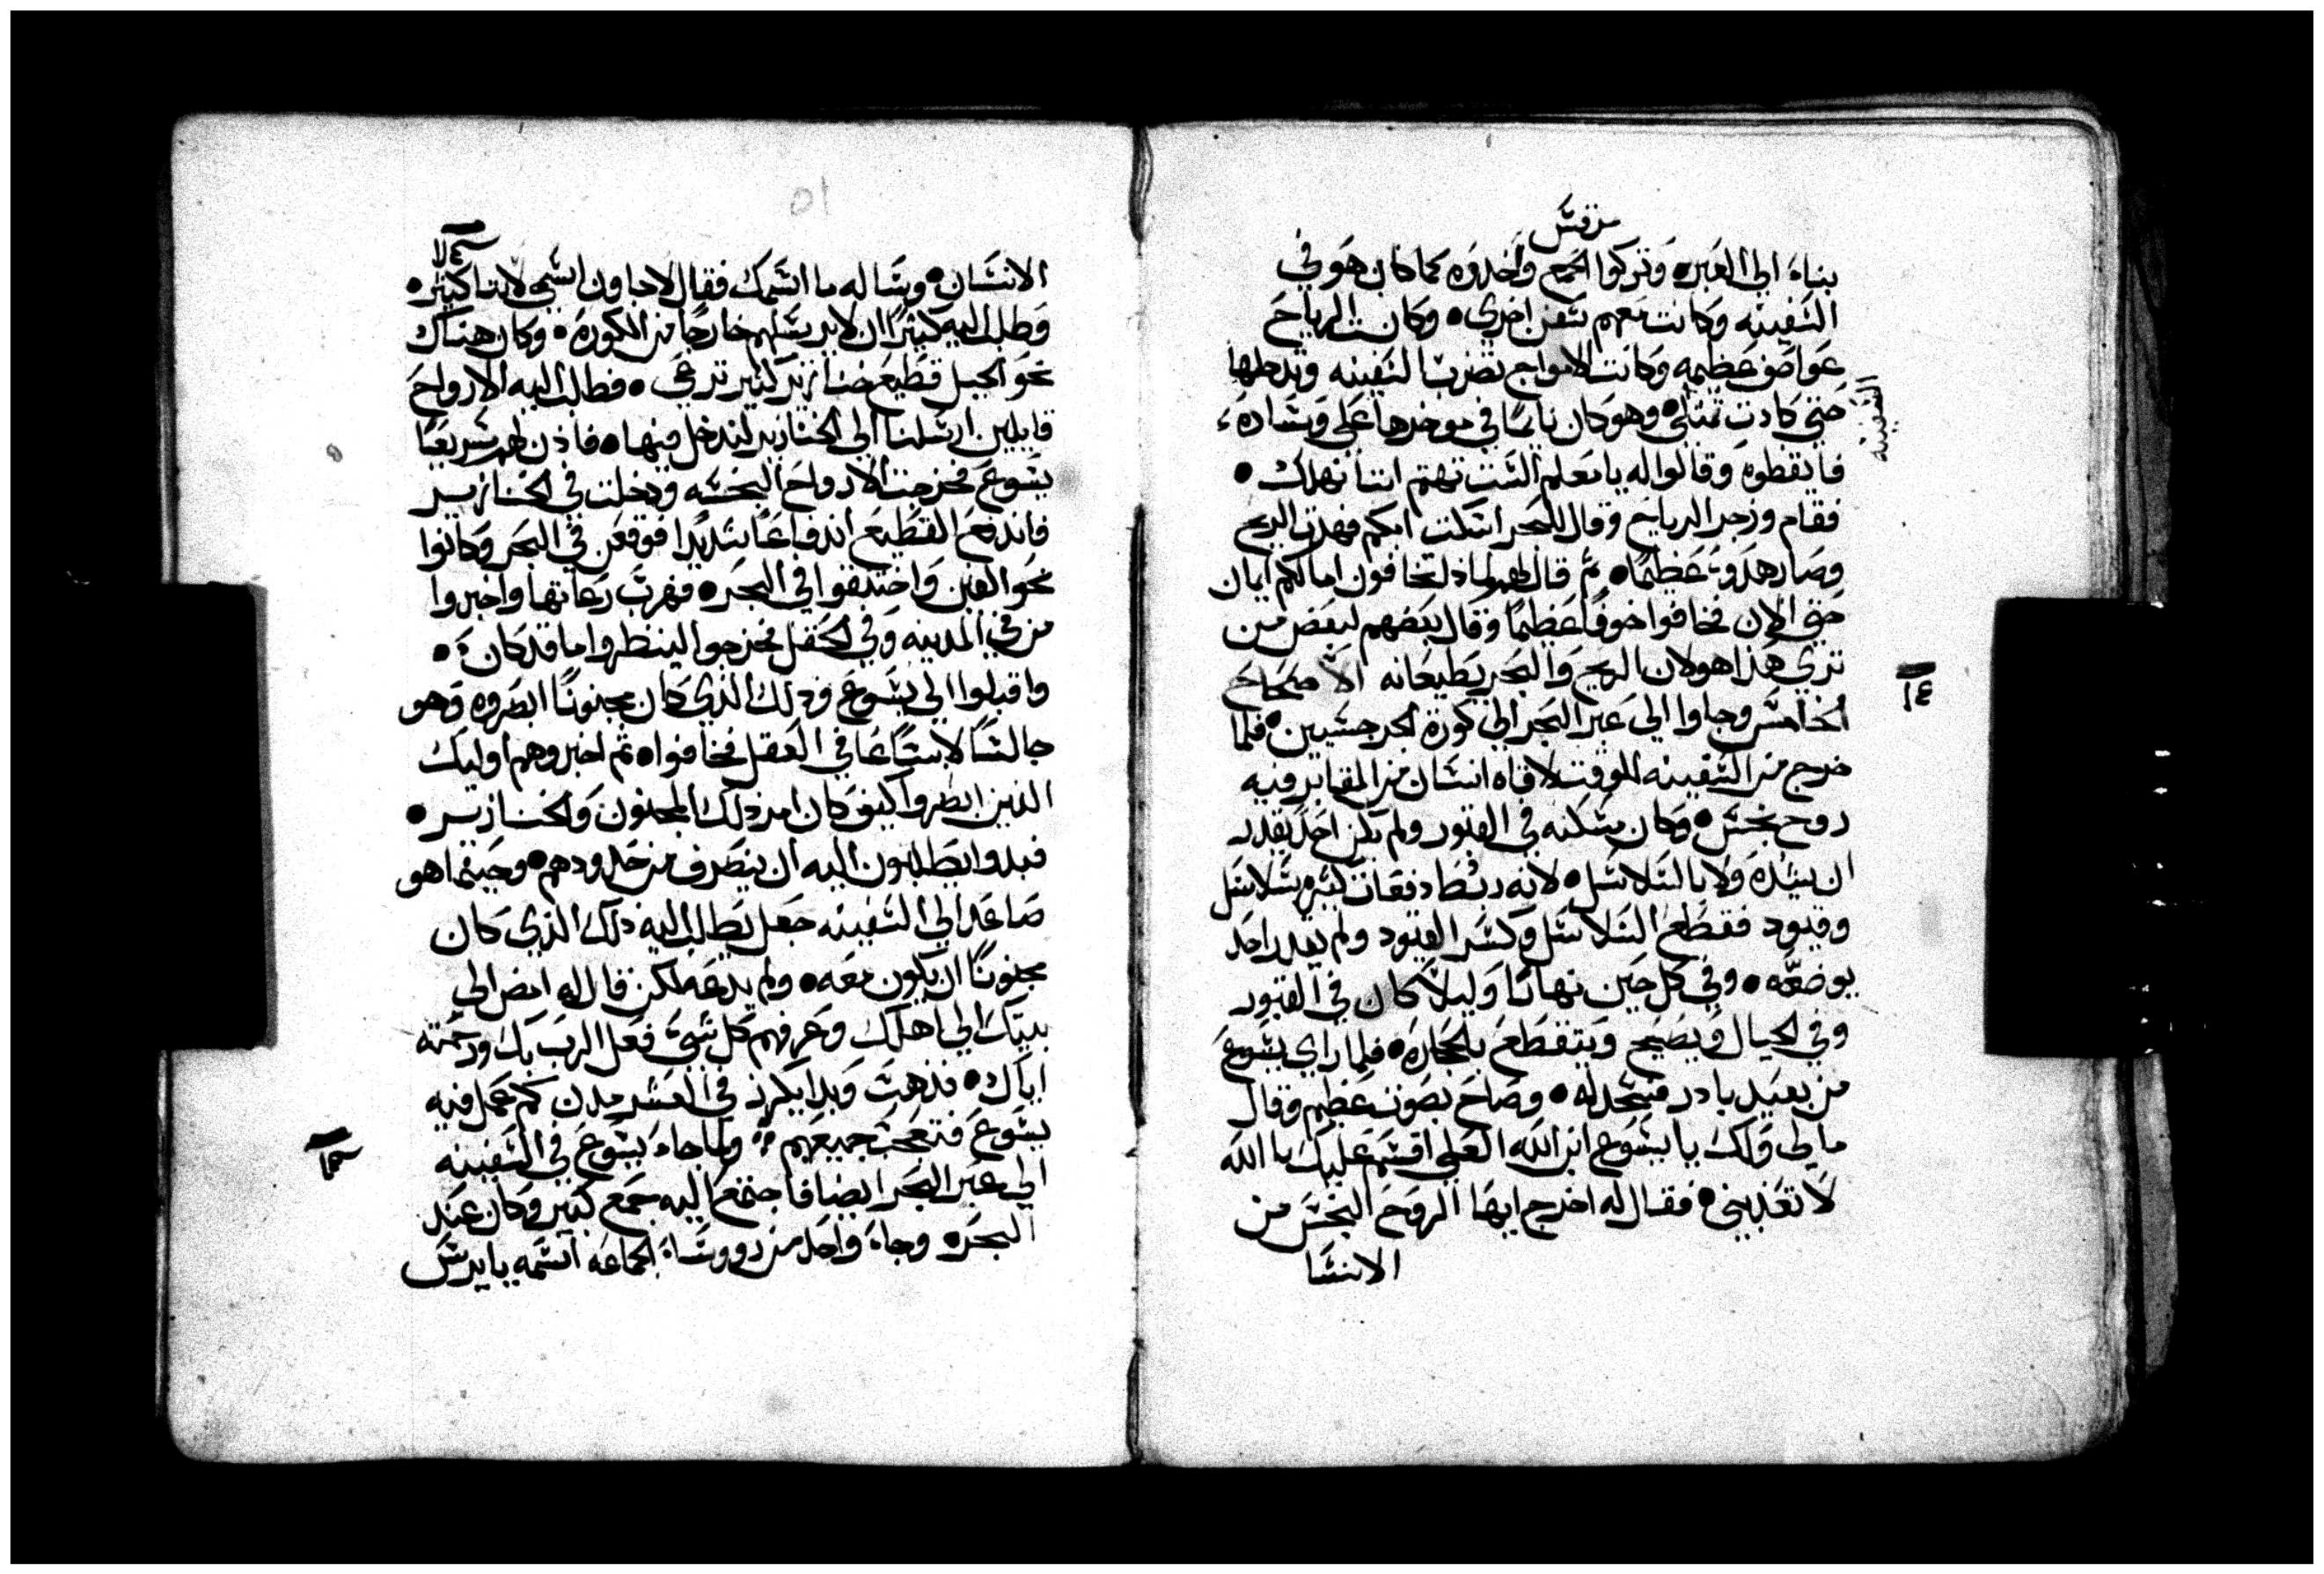 مرقس
بناء الي العبره وتركوا الجمع واخدوه كما كان هو في
السفينه وكانت معهم سفن اخري • وكانت الرياح
عواصف عظيمه وكانت الامواج تضرب السفينه وتدخلها
السفينه
حتي كادت تمتلي • وهو كان نايمًا في موخرها علي وساده
فايقظوه وقالوا له يا معلم الست تهتم اننا نهلك •
فقام وزجر الرياح وقال للبحر اسكت ابكم فهدت الريح
وصار هدوء عظيمًا • ثم قال لهم لماذا تخافون اما لكم ايمان
حتي الان فخافوا خوفًا عظيمًا وقال بعضهم لبعض من
تري هذا هو لان الريح والبحر يطيعانه الاصحاح
١٤
الخامس وجاوا الي عبر البحر الي كورة الجرجسيين • فلما
خرج من السفينه للوقت لاقاه انسان من المقابر فيه
روح نجس • وكان مسكنه في القبور ولم يكن احد يقدر
ان يشده ولا بالسلاسل • لانه ربط دفعات كثيره بسلاسل
وقيود فقطع السلاسل وكسر القيود ولم يقدر احد
يوضعه • وفي كل حين نهارًا وليلاً كان في القبور
وفي الجبال ويصيح ويتقطع بالحجاره • فلما راي يسوع
من بعيد بادر فسجد له • وصاح بصوت عظيم وقال
ما لي ولك يا يسوع ابن الله العلي اقسم عليك بالله
لا تعذبني • فقال له اخرج ايها الروح النجس من
الانسا
٥١
الانسان • وساله ما اسمك فقال لاجاون اسمي لاننا كثير •
وطلب اليه كثيرًا ان لا يرسلهم خارجًا من الكورة • وكان هناك
نحو الجبل قطيع خنازير كثير ترعي • فطلبت اليه الارواح
قايلين ارسلنا الي الخنازير لندخل فيها • فاذن لهم سريعًا
يسوع فخرجت الارواح النجسه ودخلت في الخنازير
فاندفع القطيع اندفاعًا شديدًا فوقعن في البحر وكانوا
نحو الفين واختنقوا في البحر • فهرب رعاتها واخبروا
من في المدينه وفي الحقل فخرجوا لينظروا ما قد كان •
واقبلوا الي يسوع وذلك الذي كان مجنونًا ابصروه وهو
جالسًا لابسًا عافي العقل فخافوا • ثم اخبروهم اوليك
الذين ابصروا كيف كان امر ذلك المجنون والخنازير •
فبدوا يطلبون اليه ان ينصرف من حدودهم • وحينما هو
صاعد الي السفينه جعل يطلب اليه ذلك الذي كان
مجنونًا ان يكون معه • ولم يدعه لكن قال له امض الي
بيتك الي اهلك وعرفهم كل شي فعل الرب بك ورحمته
اياك • فذهب وبدا يكرز في العشر مدن كم عمل فيه
يسوع فتعجب جميعهم • ولما جاء يسوع في السفينه
الي عبر البحر ايضا فاجتمع اليه جمع كثير وكان عند
البحره وجاء واحد من رووساء الجماعه اسمه يايرس